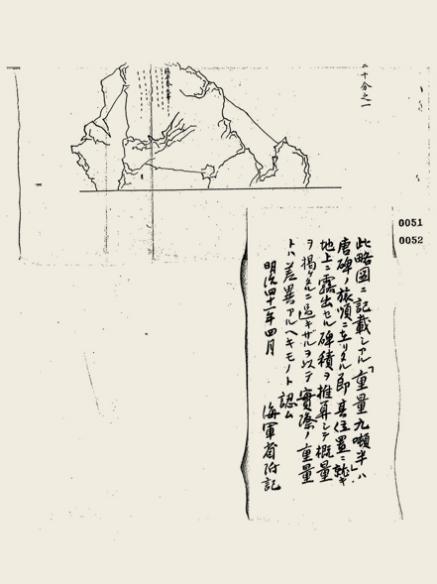 二十分之一
0051
0052
此略図ニ記載シアル「重量九噸半」ハ
唐碑ノ旅順ニ在リタル即其位置ニ就キ
地上ニ露出セル碑積ヲ推算シテ概量
ヲ掲ケタルニ過キザルヲ以テ実際ノ重量
トハ差異アルヘキモノト認ム
明治四十一年四月
海軍省附記